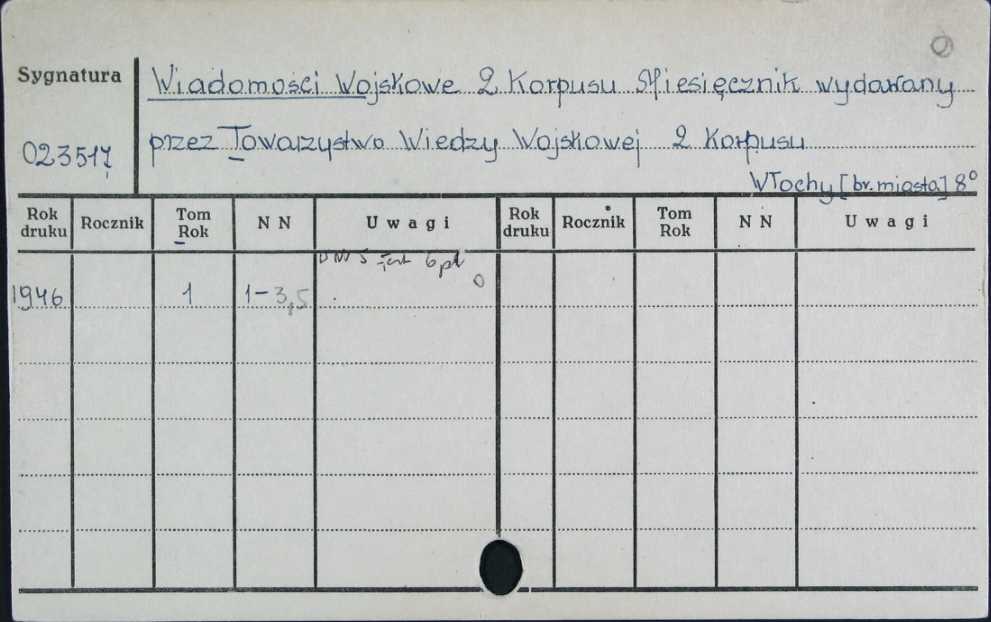 Sygnatura
023517
Wiadomości Wojskowe 2 Korpusu Miesięcznik wydawany
przez Towarzystwo Wiedzy Wojskowej 2 Korpusu
Włochy [br. miasta] 8°
Rok druku Rocznik Tom Rok N N Uwagi Rok druku Rocznik Tom Rok N N Uwagi
5 6
1946 1 1-3,5